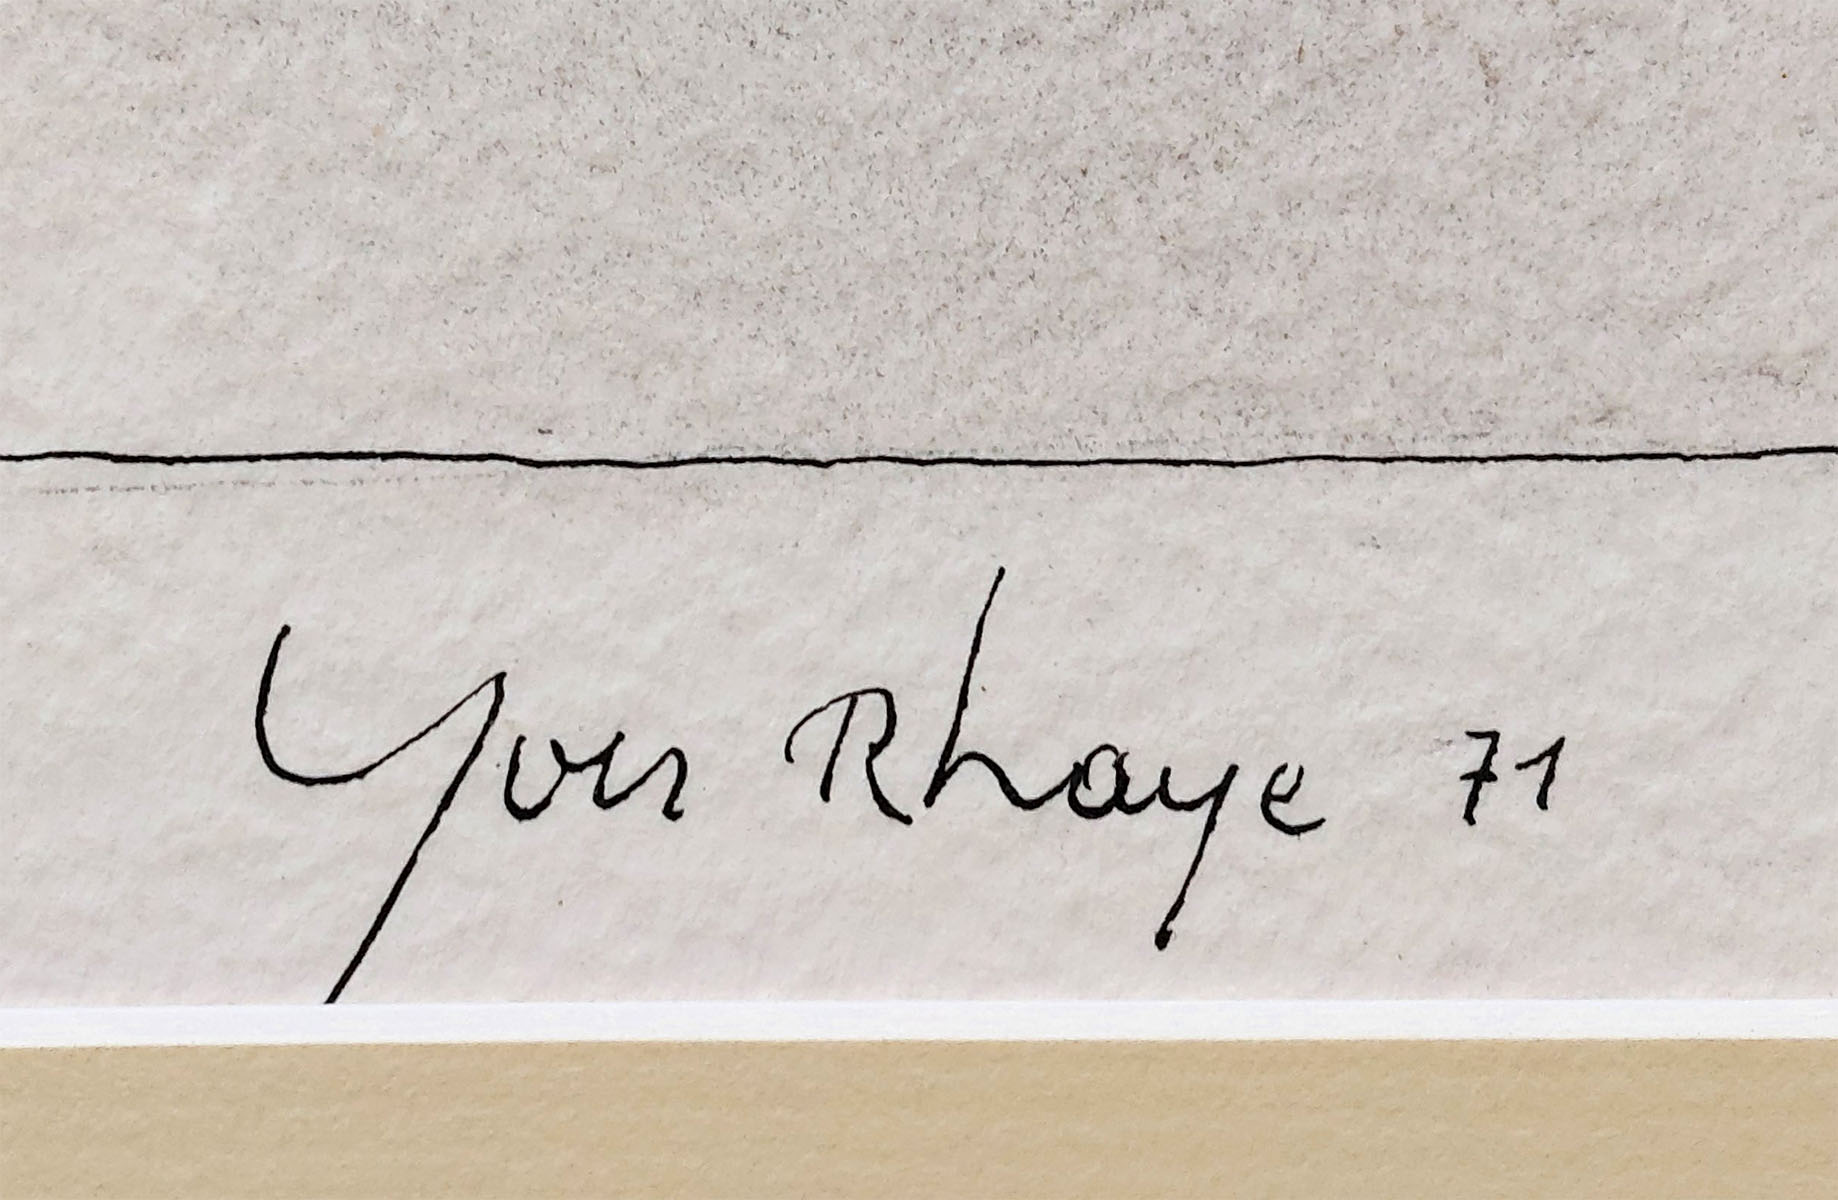 Yves Rhaye 71